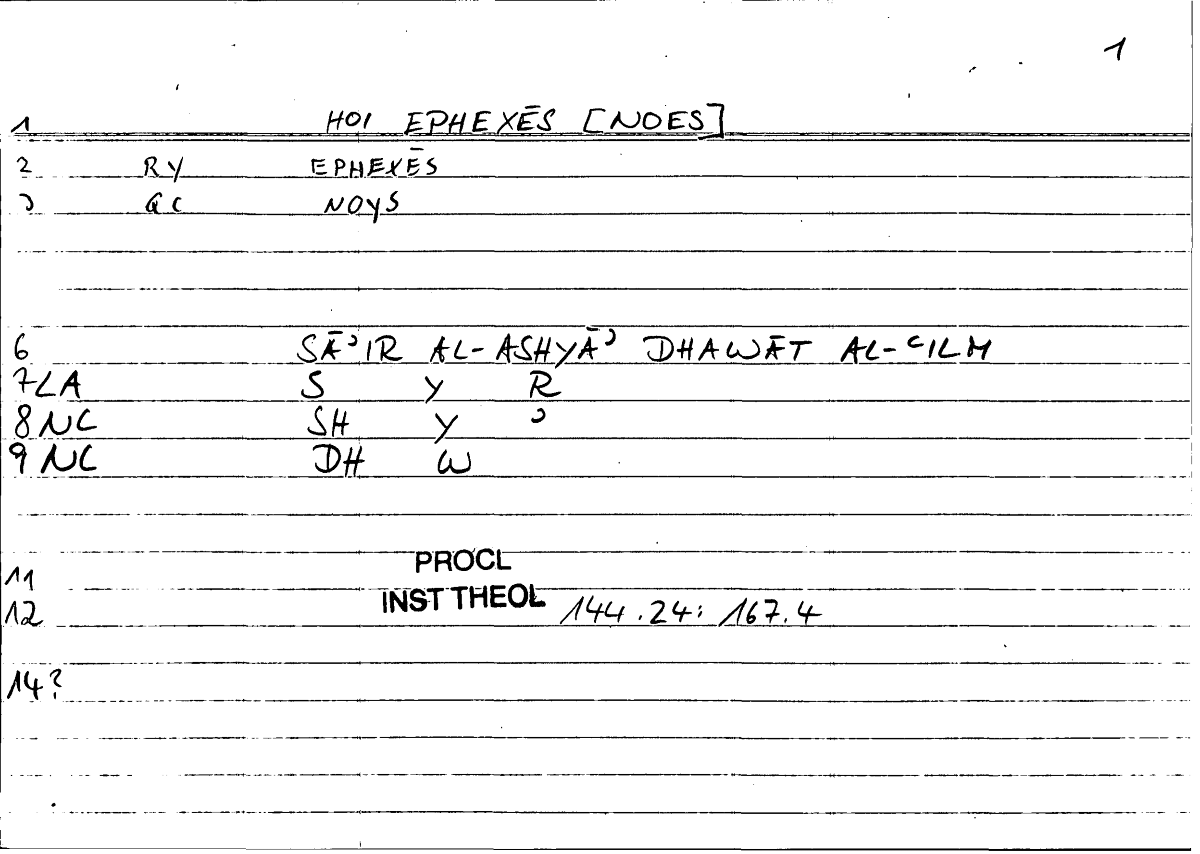 1
1 HOI EPHEXĒS [NOES]
2 RY EPHEXĒS
3 GC NOYS
6 SĀʾIR AL-ASHYĀʾ DHAWĀT AL-ʿILM
7 LA S Y R
8 NC SH Y ʾ
9 NC DH W
11 PROCL
12 INST THEOL 144.24: 167.4
14?